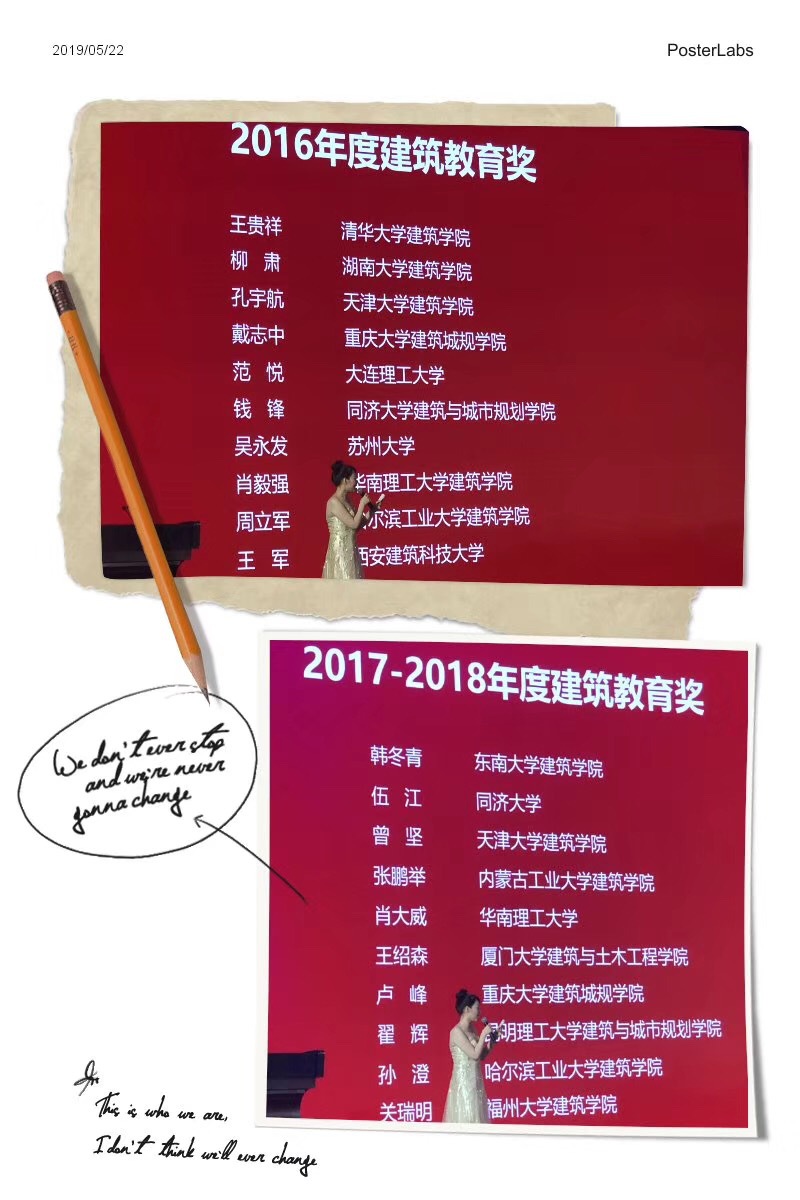 2019/05/22
PosterLabs
2016年度建筑教育奖
王贵祥 清华大学建筑学院
柳 肃 湖南大学建筑学院
孔宇航 天津大学建筑学院
戴志中 重庆大学建筑城规学院
范 悦 大连理工大学
钱 锋 同济大学建筑与城市规划学院
吴永发 苏州大学
肖毅强 华南理工大学建筑学院
周立军 尔滨工业大学建筑学院
王 军 西安建筑科技大学
2017-2018年度建筑教育奖
韩冬青 东南大学建筑学院
伍 江 同济大学
曾 坚 天津大学建筑学院
张鹏举 内蒙古工业大学建筑学院
肖大威 华南理工大学
王绍森 厦门大学建筑与土木工程学院
卢 峰 重庆大学建筑城规学院
翟 辉 明理工大学建筑与城市规划学院
孙 澄 哈尔滨工业大学建筑学院
关瑞明 福州大学建筑学院
We don't ever stop
and we're never
gonna change
This is who we are,
I don't think we'll ever change